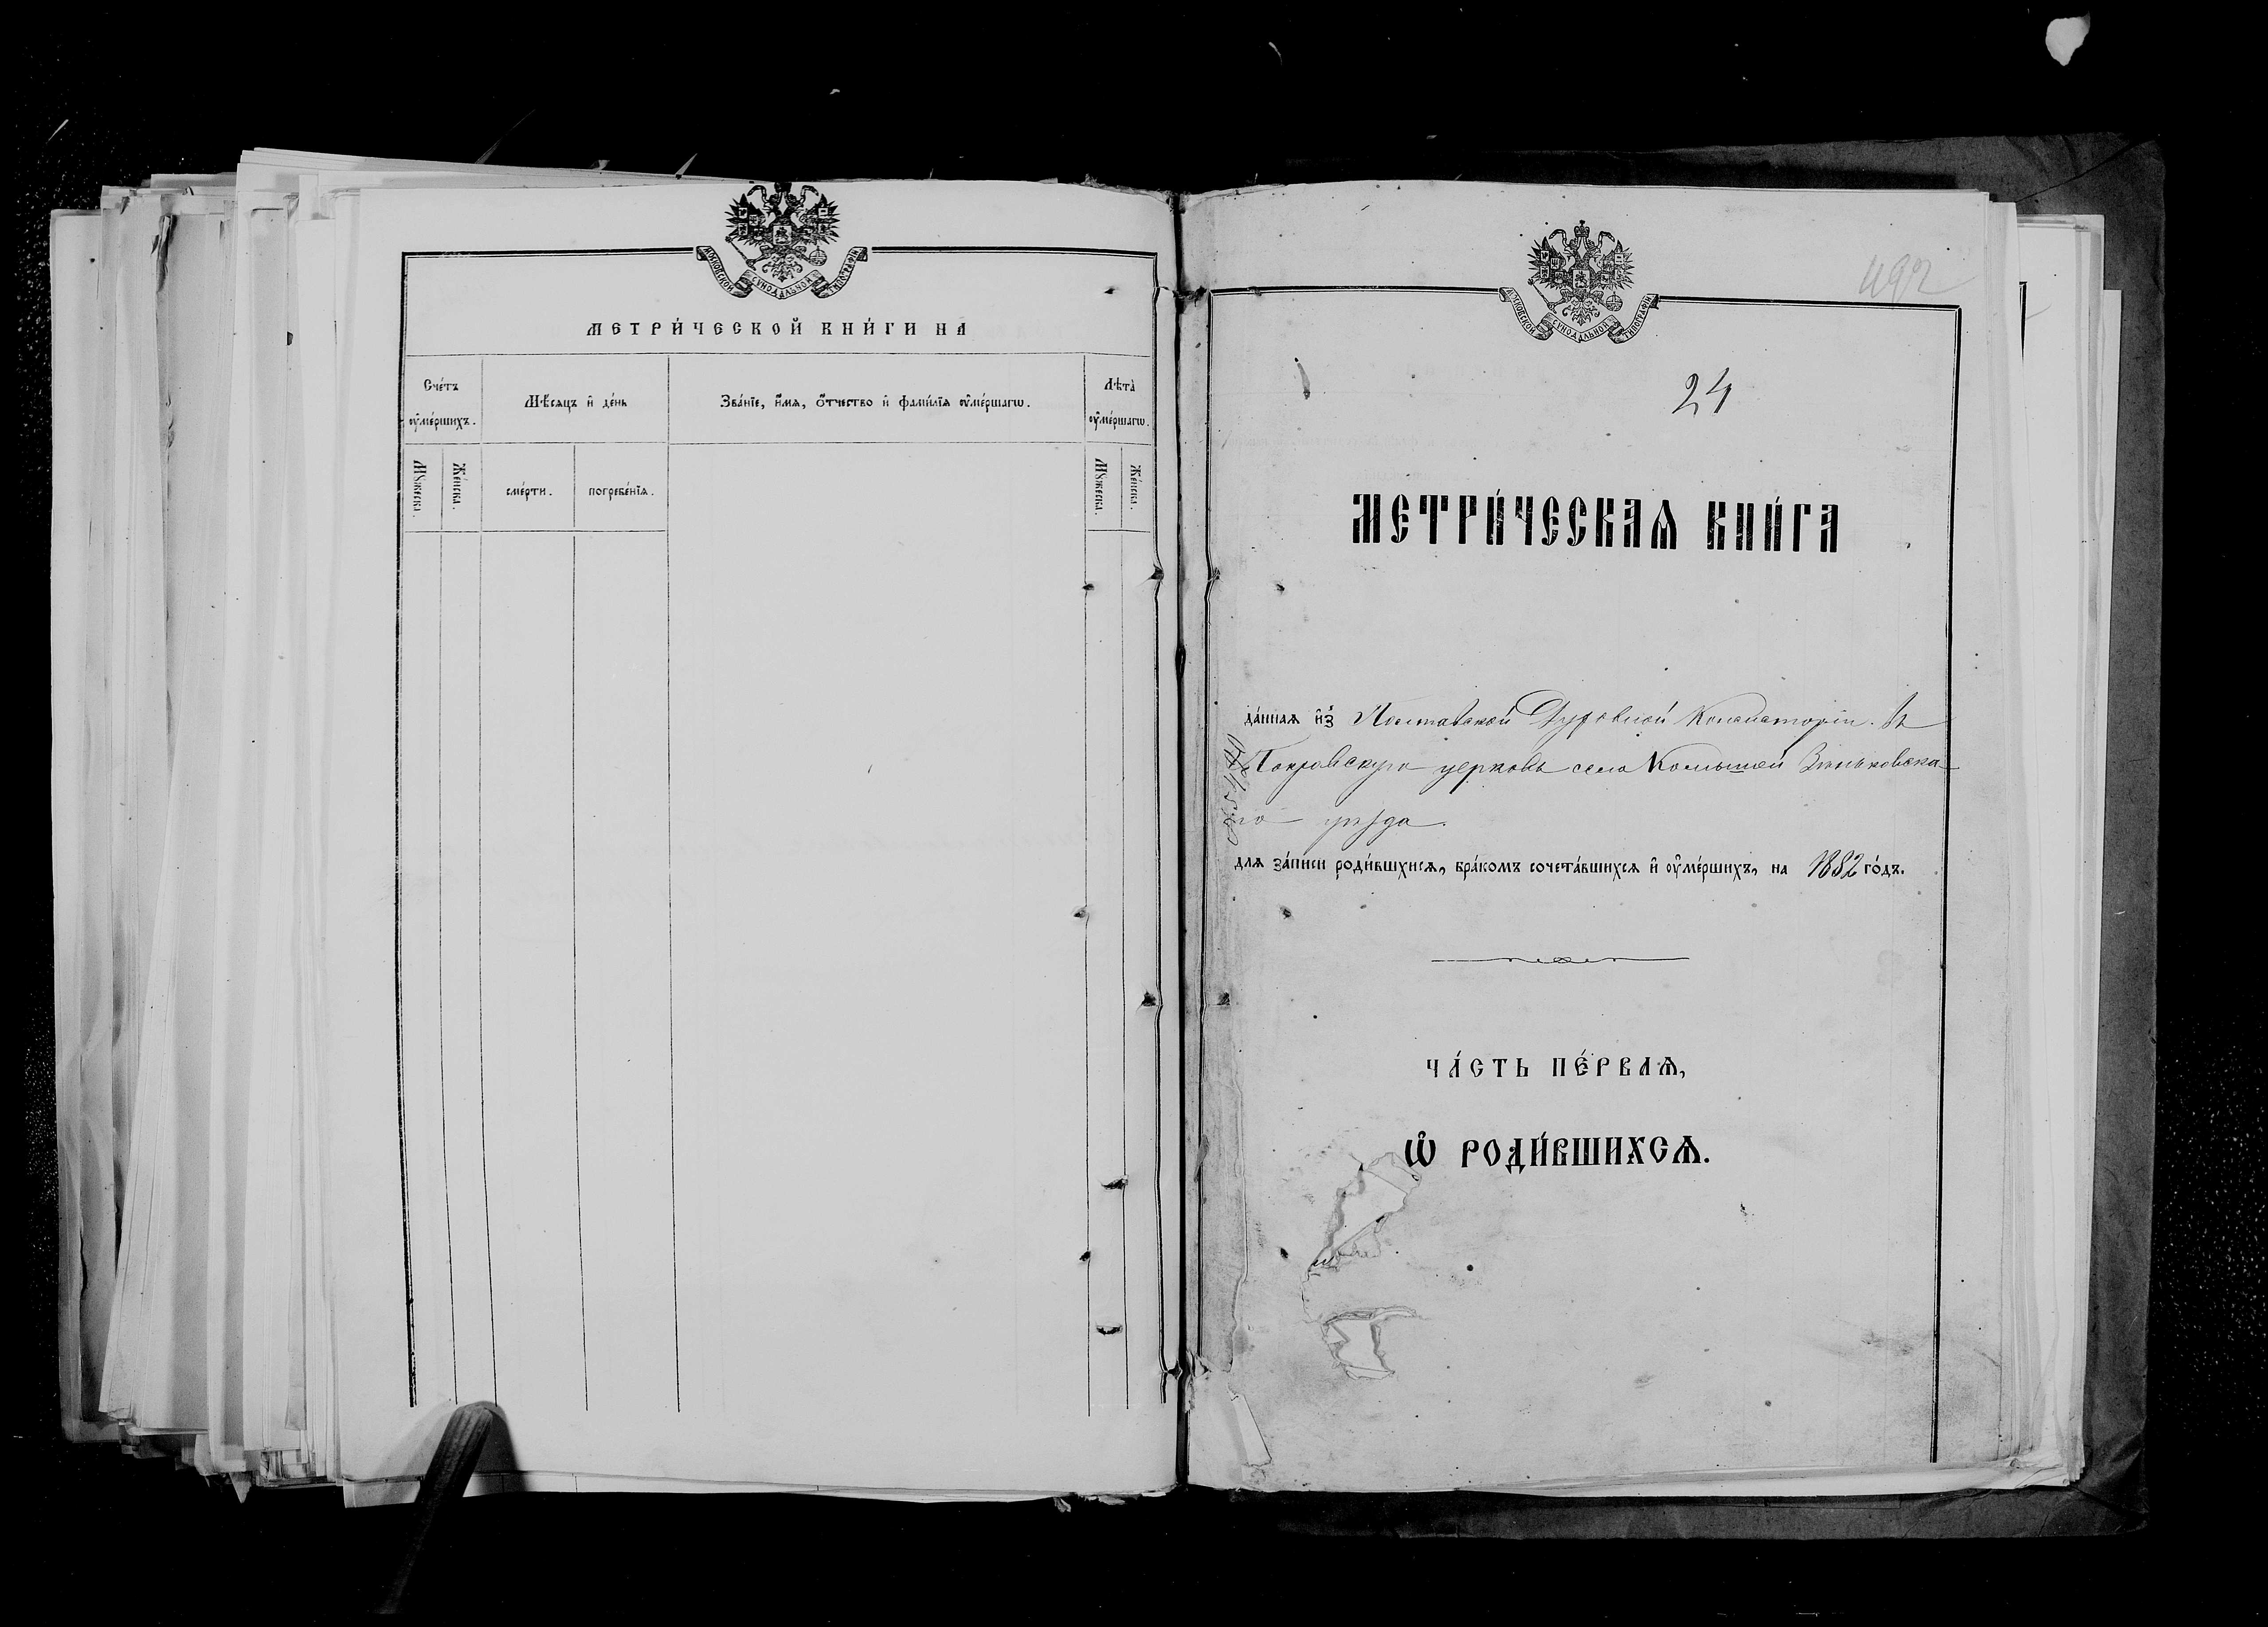 МОСКОВСКОЙ СѴНОДАЛЬНОЙ ТИПОГРАФІИ
МЕТРИ́ЧЕСКОЙ КНИ́ГИ НА
Сче́тъ ᲂу҆ме́ршихъ.
Мѣ́сяцъ и҆ де́нь
Зва́нїе, и҆́мѧ, ѻ҆́тчество и҆ фами́лїѧ ᲂу҆ме́ршагѡ.
Лѣта̀ ᲂу҆ме́ршагѡ.
Мꙋ́жеска.
Же́нска.
сме́рти.
погребе́нїѧ.
Мꙋ́жеска.
Же́нска.
МОСКОВСКОЙ СѴНОДАЛЬНОЙ ТИПОГРАФІИ
492
24
МЕТРИ́ЧЕСКАѦ КНИ́ГА
да́ннаѧ и҆з̾ Полтавской Духовной Консисторіи. Въ
Покровскую церковь села Комышей Зѣньковска
го уѣзда.
для за́писи роди́вшхисѧ, бра́комъ сочета́вшихсѧ и҆ ᲂу҆ме́ршихъ, на 1882 го́дъ.
ЧА́СТЬ ПЕ́РВАѦ,
Ѡ҆ РОДИ́ВШИХСѦ.